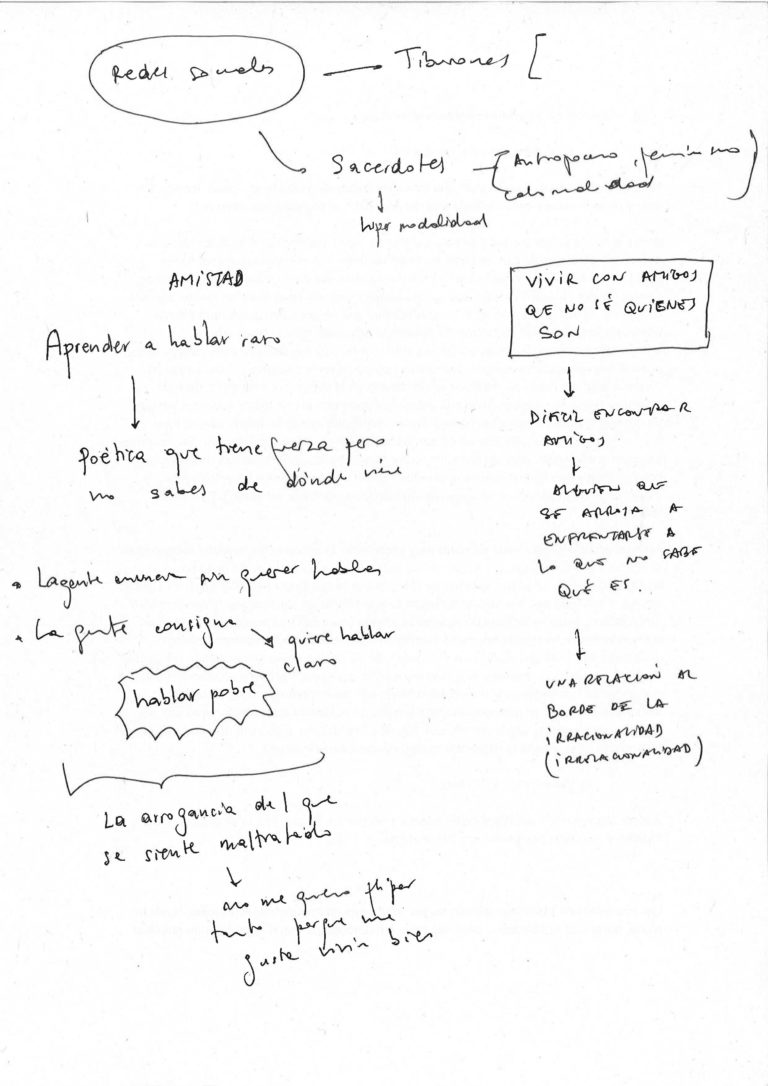 Redes sociales
Tiburones
Sacerdotes
Antropoceno, feminismo
hipermodalidad
AMISTAD
Aprender a hablar raro
Poética que tiene fuerza pero
no sabes de dónde viene
La gente enuncia sin querer hablar
La gente consigna
quiere hablar
claro
hablar pobre
La arrogancia del que
se siente maltratado
no me quiero flipar
tanto porque me
gusta vivir bien
VIVIR CON AMIGOS
QUE NO SÉ QUIENES
SON
DIFICIL ENCONTRAR
AMIGOS.
ALGUIEN QUE
SE ARROJA A
ENFRENTARSE A
LO QUE NO SABE
QUÉ ES.
UNA RELACIÓN AL
BORDE DE LA
IRRACIONALIDAD
(IRRELACIONALIDAD)